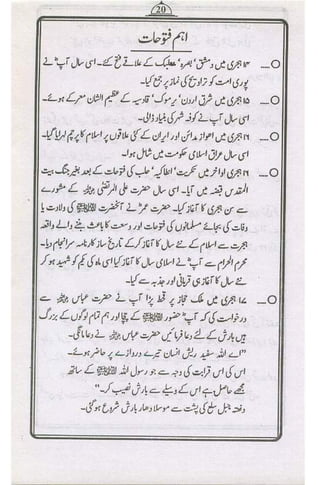 20
اہم فتوحات
۱۴ ہجری میں دمشق' بصرہ' بعلبک کے علاقے فتح کئے۔ اسی سال آپ نے
پوری امت کو تراویح کی نماز پر جمع کیا۔
۱۵ ہجری میں شرق اردن' یرموک' قادسیہ کے عظیم الشان معرکے ہوئے۔
اسی سال آپ نے کوفہ شہر کی بنیاد ڈالی۔
۱۶ ہجری میں اھواز مدائن اور ایران کے کئی علاقوں پر اسلام کا پرچم لہرایا گیا۔
اسی سال عراق اسلامی حکومت میں شامل ہوا۔
۱۶ ہجری اواخر میں تکریت' انطاکیہ' حلب کی فتوحات کے بعد بغیر جنگ بیت
المقدس قبضہ میں آیا۔ اسی سال حضرت علی المرتضیٰ کے مشورے
سے سن ہجری کا آغاز کیا۔ حضرت عمرؓ نے آنحضرت ﷺ کی ولادت یا
وفات کی بجائے مسلمانوں کی فتوحات اور وسعت کا باعث بننے والے واقعہ
ہجرت سے اسلام کے نئے سال کا آغاز کر کے تاریخ ساز کارنامہ سرانجام دیا۔
محرم الحرام سے آپ نے اسلامی سال کا آغاز کیا اسی ماہ کی یکم کو شہید ہو کر
نئے سال کا آغاز ہی قربانی اور جذبہ سے کیا۔
۱۷ ہجری میں ملک حجاز پر قحط پڑا آپ نے حضرت عباس سے
درخواست کی کہ آپ حضور ﷺ کے چچا اور ہم تمام لوگوں کے بزرگ
ہیں بارش کے لئے دعا فرمائیں حضرت عباس نے دعا مانگی۔
"اے اللہ سفید ریش انسان تیرے دروازے پر حاضر ہوئے۔
اس کی اس قرابت کی وجہ سے جو رسول اللہ ﷺ کے ساتھ
مجھے حاصل ہے اس کے وسیلے سے بارش نصیب کر۔"
دفعتہ جبل سلع کی پشت سے موسلا دھار بارش شروع ہو گئی۔